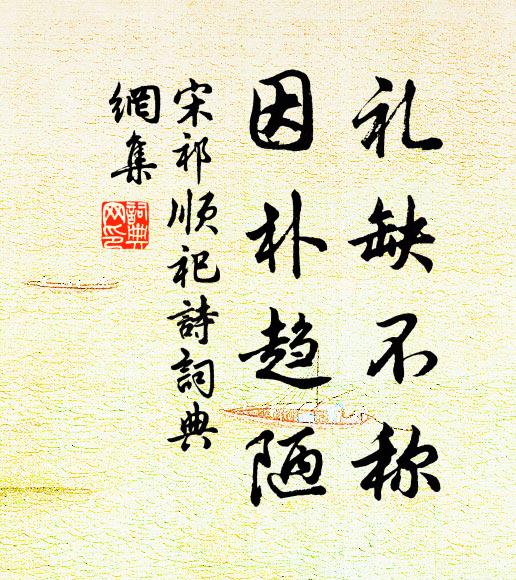 礼缺不称
因朴趋陋
宋祁顺祀詩詞典
網集
詞典
网印